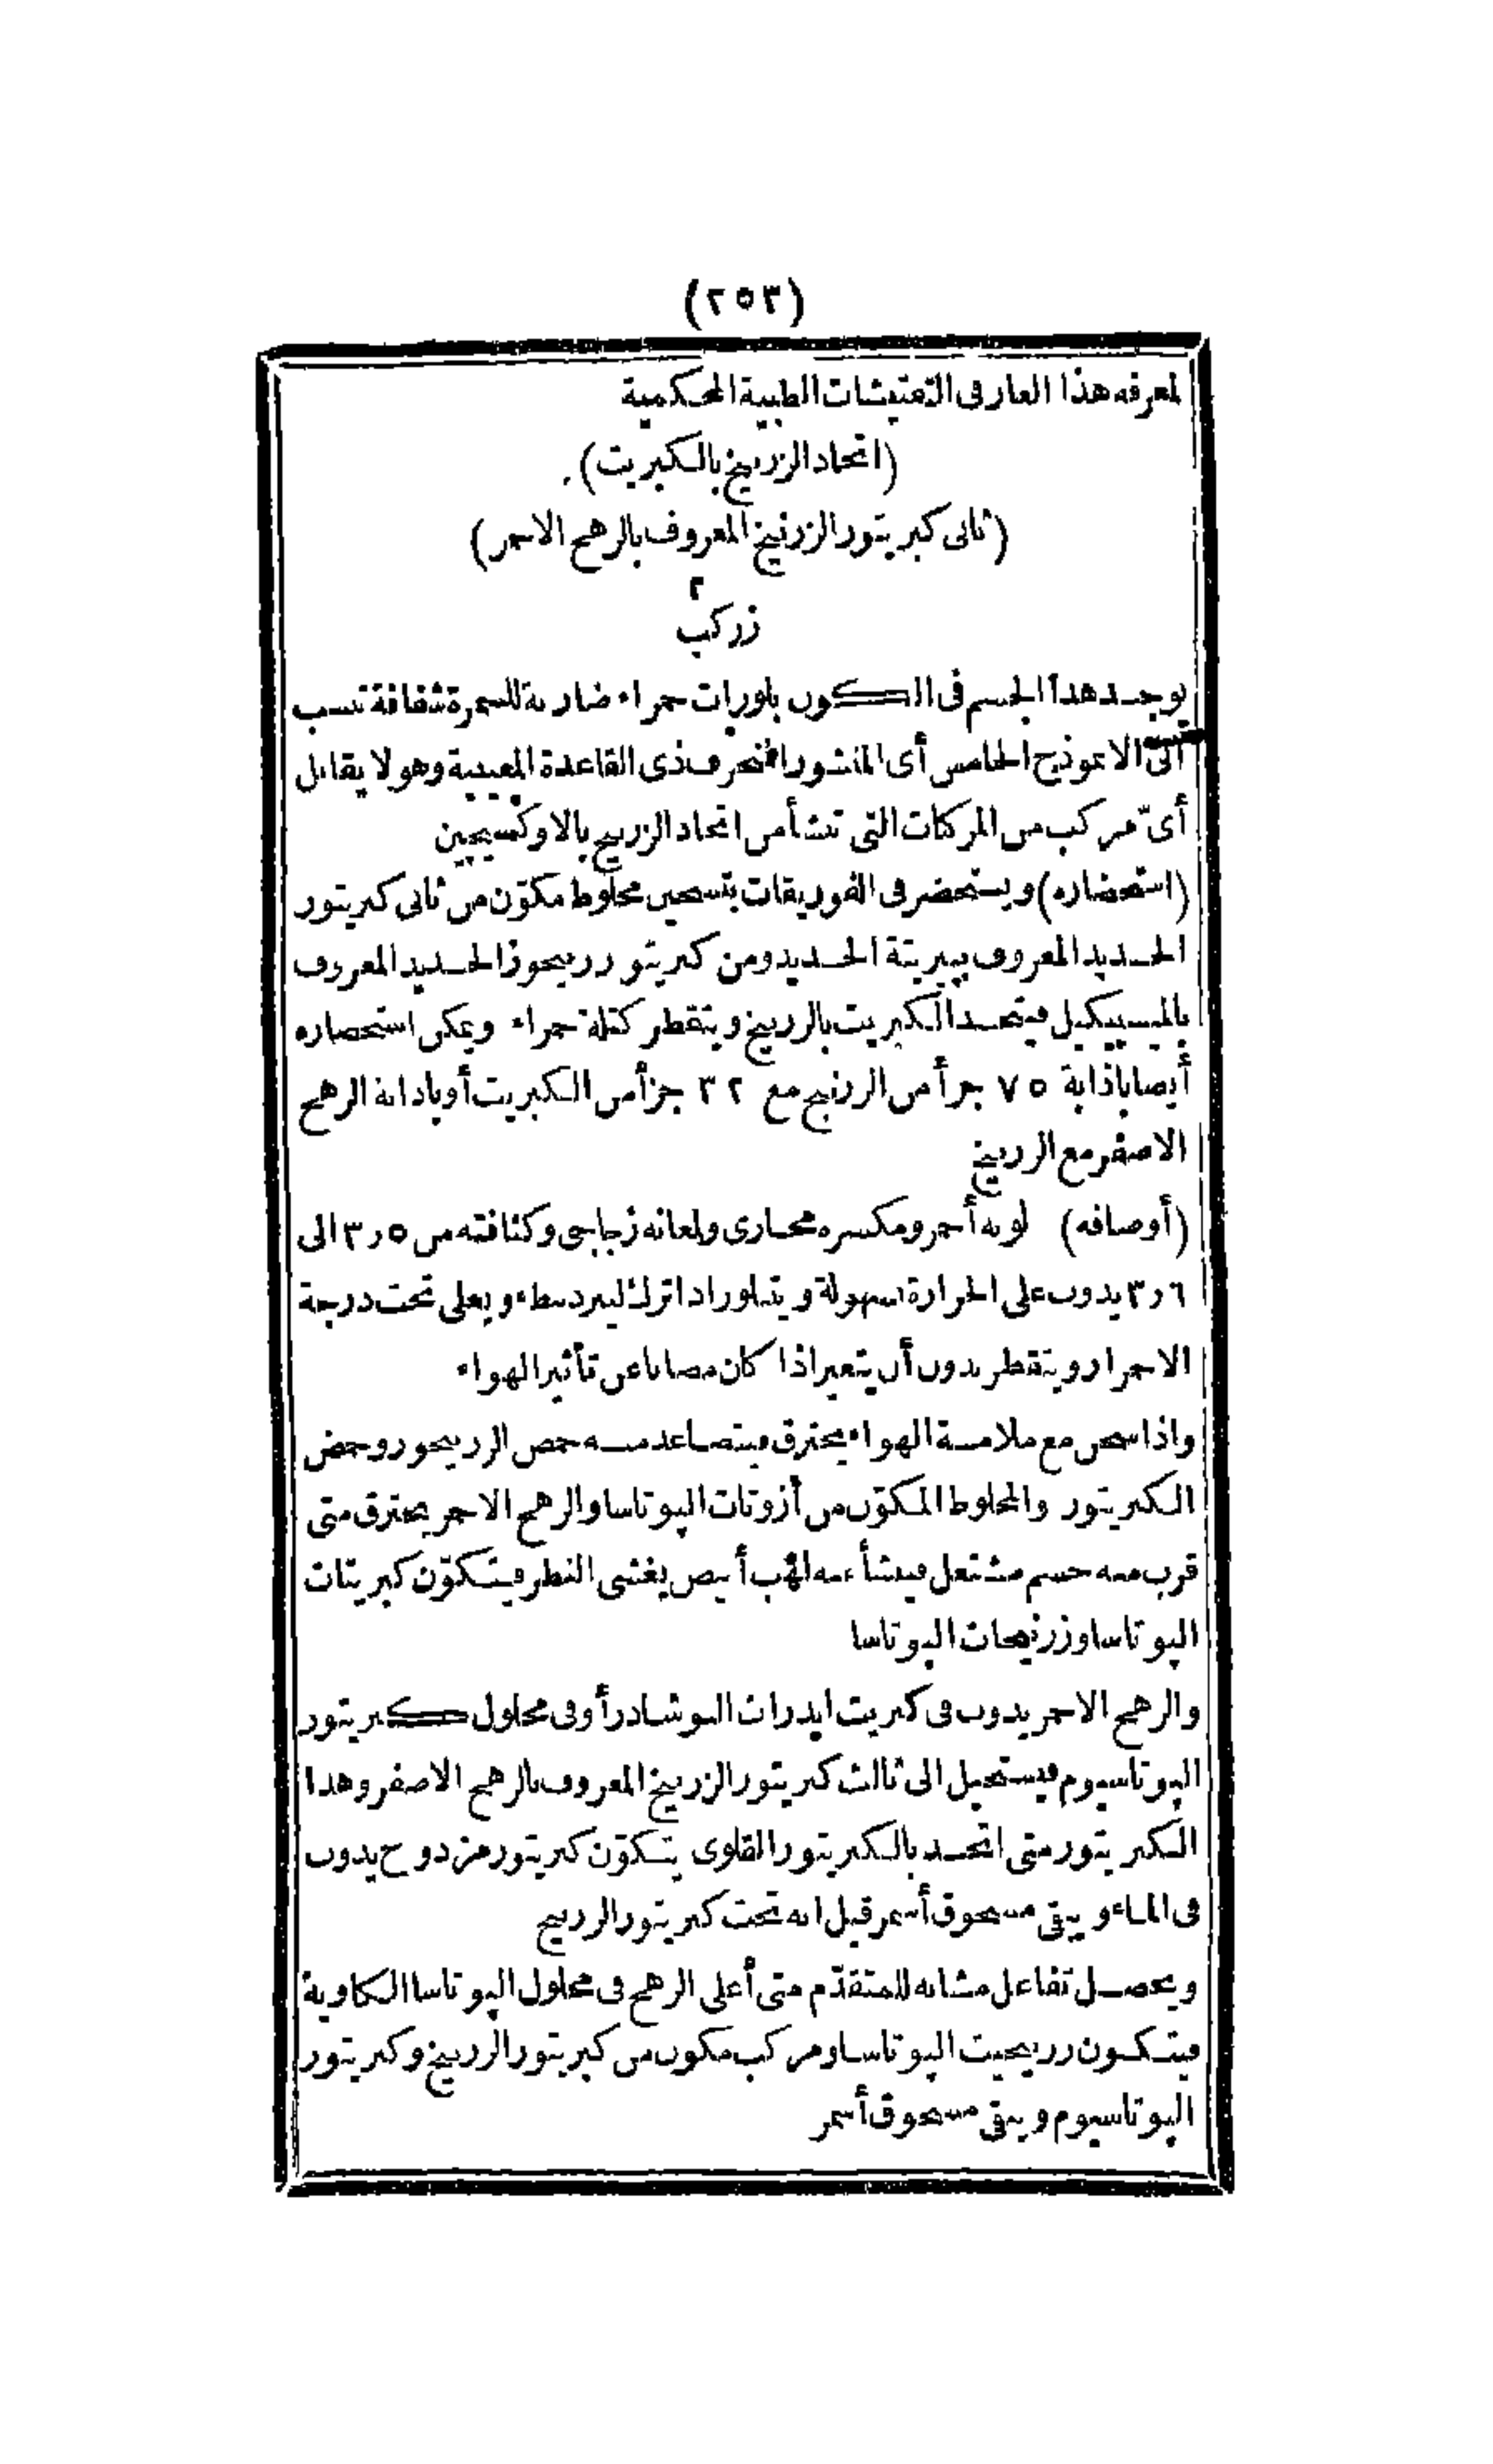 (٢٥٣)
لمعرفة هذا الغاز فى التفتيشات الطبية المحكمية
(اتحاد الزرنيخ بالكبريت)
(ثانى كبريتور الزرنيخ المعروف بالرهج الاحمر)
٢
زركب
يوجد هذا الجسم فى الكون بلورات حمراء ضاربة للسمرة شفافة تنسب
الى الانموذج الخامس أى المنشور المنحرف ذى القاعدة المعينية وهو لا يقابل
أىّ مركب من المركبات التى تنشأ من اتحاد الزرنيخ بالاوكسيجين
(استحضاره) ويستحضر فى الفوريقات بتسخين مخلوط مكوّن من ثانى كبريتور
الحديد المعروف ببيريتة الحديد ومن كبريتور زرنيخوز الحديد المعروف
بالميسبيكيل فيتحد الكبريت بالزرنيخ ويتقطر كتلة حمراء ويمكن استحضاره
أيضا باذابة ٧٥ جزأ من الزرنيخ مع ٣٢ جزأ من الكبريت أو باذابة الرهج
الاصفر مع الزرنيخ
(أوصافه) لونه أحمر ومكسره محارى ولمعانه زجاجى وكثافته من ٥ر٣ الى
٦ر٣ يذوب على الحرارة بسهولة ويتبلور اذا ترك ليبرد ببطء ويغلى تحت درجة
الاحمرار ويتقطر بدون أن يتغير اذا كان مصانا عن تأثير الهواء
واذا سخن مع ملامسة الهواء يحترق فيتصاعد منه حمض الزرنيخوز وحمض
الكبريتور والمخلوط المكوّن من أزوتات البوتاسا والرهج الاحمر يحترق متى
قرب منه جسم مشتعل فينشأ عنه لهب أبيض يغشى النظر فيتكوّن كبريتات
البوتاسا وزرنيخات البوتاسا
والرهج الاحمر يذوب فى كبريت ايدرات النوشادر أو فى محلول كبريتور
البوتاسيوم فيستحيل الى ثالث كبريتور الزرنيخ المعروف بالرهج الاصفر وهذا
الكبريتور متى اتحد بالكبريتور القلوى يتكوّن كبريتور مزدوج يذوب
فى الماء ويبقى مسحوق أسمر قيل انه تحت كبريتور الزرنيخ
ويحصل تفاعل مشابه للمتقدّم متى أغلى الرهج فى محلول البوتاسا الكاوية
فيتكون زرنيخيت البوتاسا ومركب مكون من كبريتور الزرنيخ وكبريتور
البوتاسيوم ويبقى مسحوق أسمر